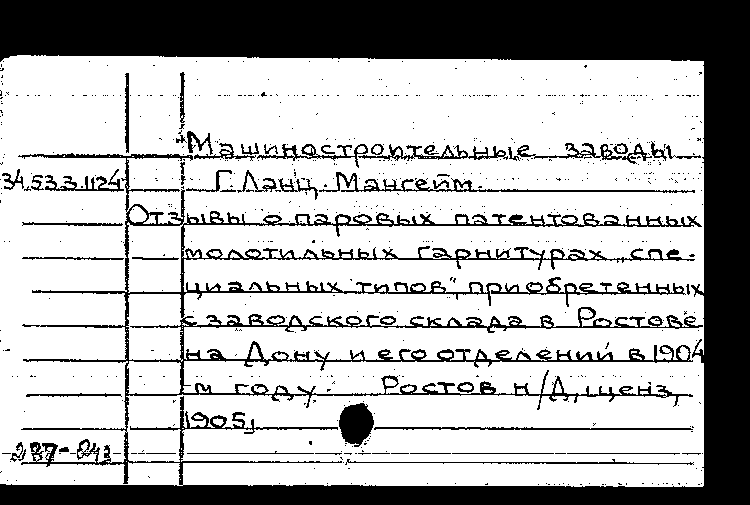 "Машиностроительные заводы
34.53.3.1124 Г. Ланц. Мангейм.
Отзывы о паровых патентованных
молотильных гарнитурах „спе-
циальных типов", приобретенных
с заводского склада в Ростове
на Дону и его отделений в 1904
-м году. Ростов н/Д, ценз,
1905,